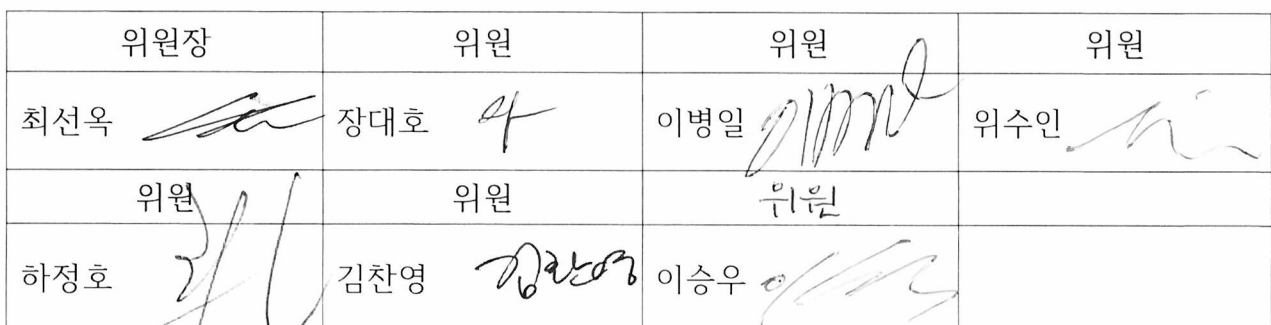 위원장 위원 위원 위원
최선옥 장대호 이병일 위수인
위원 위원 위원
하정호 김찬영 김찬영 이승우